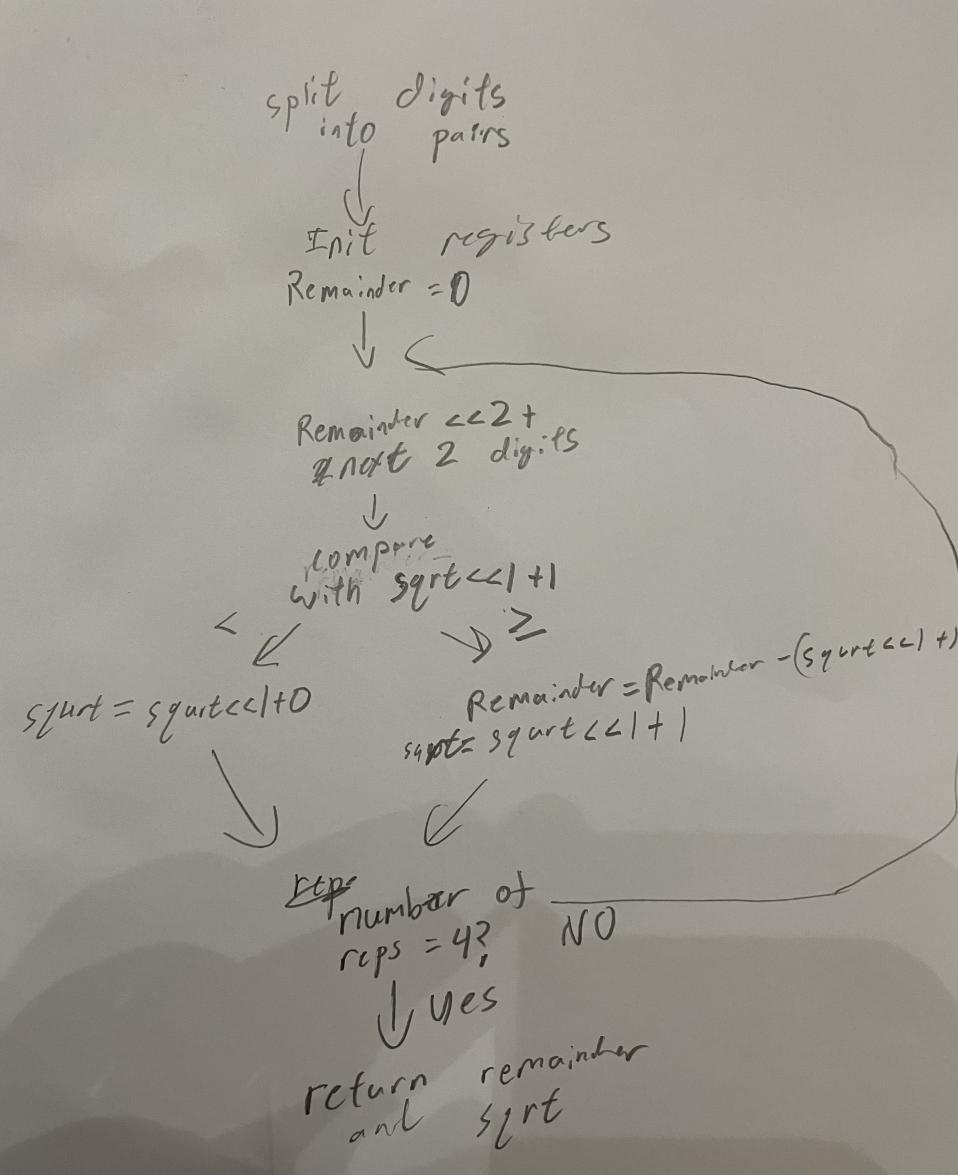 split digits
into pairs
Init registers
Remainder = 0
Remainder <<2 +
next 2 digits
compare
with sqrt<<1 +1
<
≥
squrt = squrt<<1+0
Remainder = Remainder -(squrt<<1 +)
sqrt= squrt <<1 +1
reps
number of
reps = 4?
NO
yes
return remainder
and sqrt